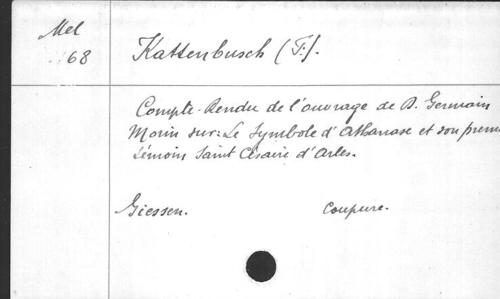 Mel
68
Kattenbusch (F.).
Compte-Rendu de l'ouvrage de D. Germain
Morin sur: Le Symbole d'Athanase et son prem
témoin Saint Césaire d'Arles.
Giessen. Coupure.